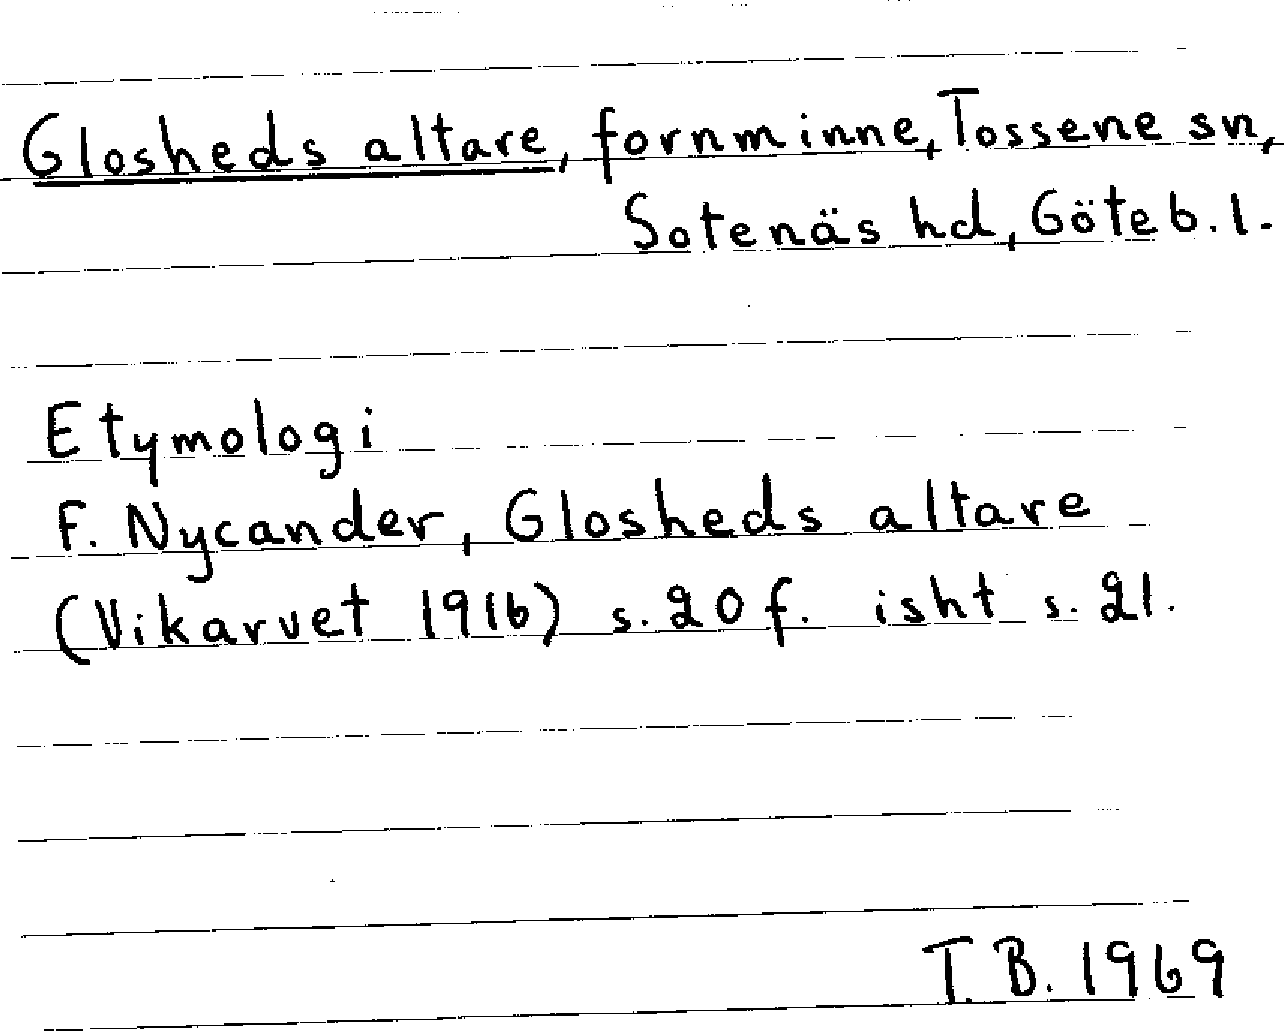 Glosheds altare, fornminne, Tossene sn,
Sotenäs hd, Göteb. l.
Etymologi
F. Nycander, Glosheds altare
(Vikarvet 1916) s. 20 f. isht s. 21.
T. B. 1969